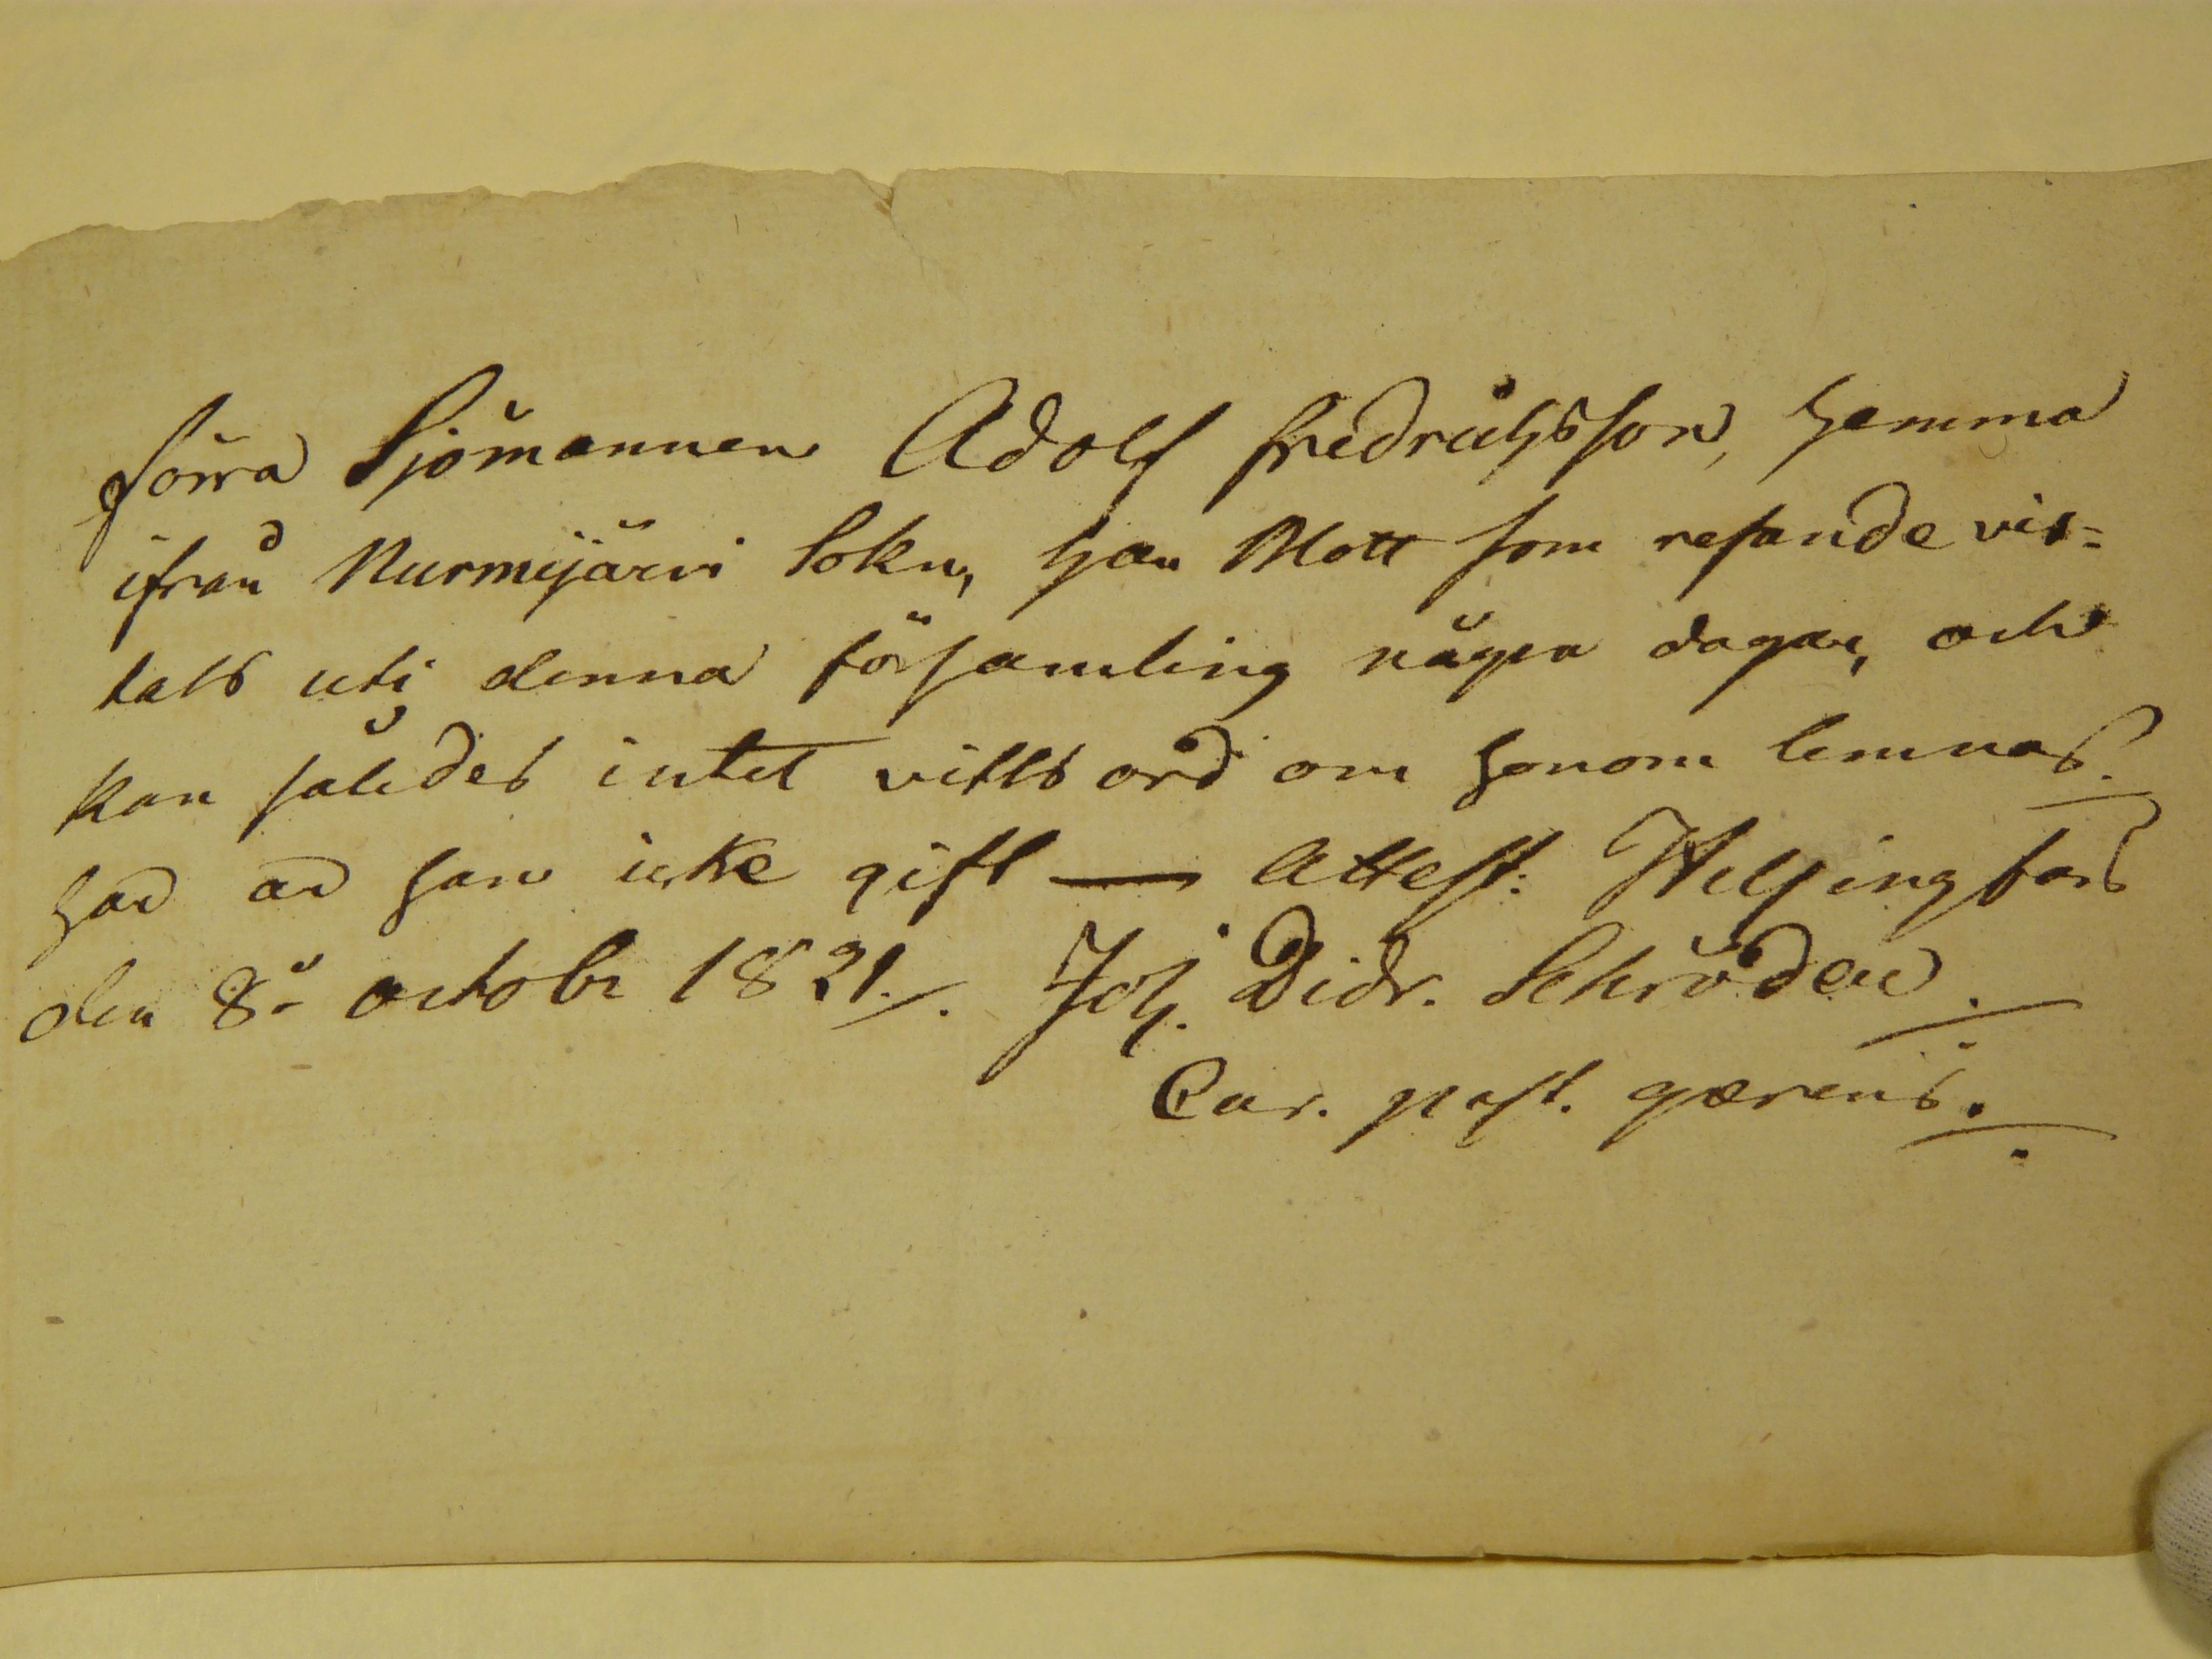 Förra Sjömannen Adolf Fredrichsson, hemma
ifrån Nurmijärvi Sokn, har blott som resande vis=
tats uti denna församling några dagar, och
kan således intet vitts ord om honom lemnas.
här är han icke gift — Attest. Helsingfors
den 8de octobr 1821./. Joh. Didr. Schröder.
Cur. past. gerens.